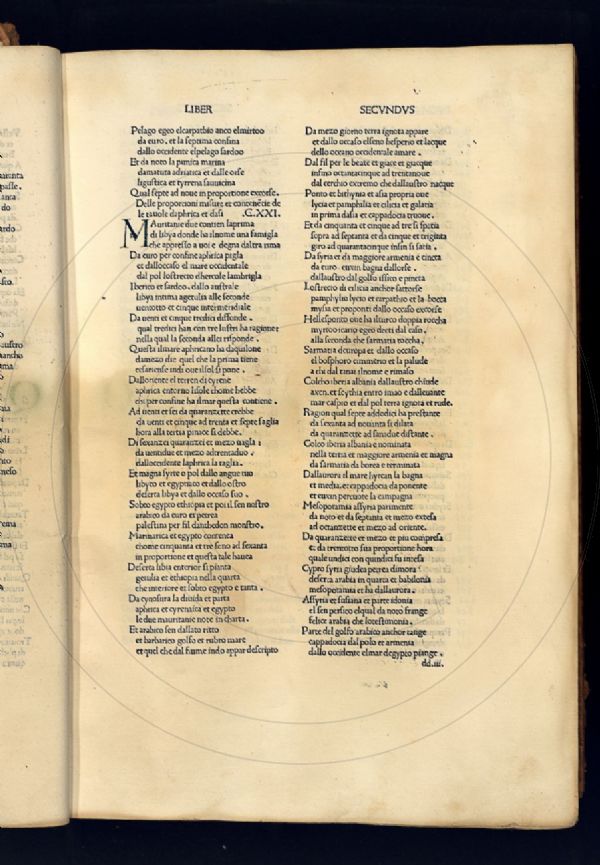 LIBER
Pelago egeo elcarpathio anco elmirtoo
da euro. et la septima confina
dallo occidente elpelago sardoo
Et da noto la punica marina
damatura adriatica et dalle orse
ligustica et tyrrena
Qual septe ad noue in proportione excorse.
Delle proportioni misure et
le tauole daphrica et dasi .C.XXI.
Mauritanie due contien laprima
di libya donde ha ilnome una famiglia
che appresso a noi e degna daltra
Da euro per confine aphrica pigla
et dalloccaso el mare occidentale
dal pol lostrecto dhercule lambrigla
Iberico et sardoo. dallo australe
libya intima agetulia alle seconde
uentotto et cinque
Da uenti et cinque tredici diffonde
qual tredici han con tre lustri ha ragione
nella qual la seconda allei risponde.
Questa ilmare aphricano ha daquilone
damezo die quel che la prima tiene
indi oue ilsol si pone.
Dalloriente el terren di cyrene
aphrica entorno lisole chome hebbe
chi per confine ha ilmar questa contiene.
Ad uenti et sei da quaranzette crebbe
da uenti et cinque ad trenta et septe
hora alla tertia pinace si debbe.
Di sexanzei quaranzei et mezo
da uentidue et mezo
dalloccidente laphrica la
Et magna syrte o pol dallo angue tuo
libyco et egyptiaco et dallo ostro
deserta libya et dallo occaso suo.
Sobto egypto ethiopia et poi il sen nostro
arabico da euro et petrea
palestina per fil monstro.
Marmarica et egypto correnta
chome cinquanta et tre seno ad sexanta
in proportione et questa tale hauea
Deserta libia enterior si pianta
getulia et ethiopia nella quarta
che interiore et sobto egypto e tanta.
Da cynosura la diuida et parta
aphrica et cyrenaica et egypto
le due mauritanie note in charta.
Et arabico sen dallato ritto
et barbarico golfo et rubro mare
et quel che dal fiume indo appar descripto
SECVNDVS
Da mezo giorno terra ignota appare
et dallo occaso elseno hesperio et lacque
dello oceano occidentale amare.
Dal fil per le beate et giace et giacque
infino octantacinque ad trentanoue
dal cerchio extremo che dallaustro nacque
Ponto et bithynia et asia propria oue
lycia et pamphilia et cilicia et galatia
in prima dasia et cappadocia truoue.
Et da cinquanta et cinque ad tre si spatia
sopra ad septanta et da cinque et triginta
giro ad quarantacinque infin si satia.
Da syria et da maggiore armenia e cincta
da euro. euxin bagna dallorse.
dallaustro dal golfo issico e pincta
Lostrecto di cilicia anchor fattorse
pamphylio lycio et carpathio et la bocca
mysia et proponti dallo occaso excorse
Hellesponto oue ha ilturco doppia roccha
myrtoo icaro egeo detti dal caso.
alla seconda che sarmatia toccha.
Sarmatia deuropa et dallo occaso
el bosphoro cimmerio et la palude
a chi dal tanai ilnome e rimaso
Colcho iberia albania dallaustro chiude
axen. et scythia entro imao e dalleuante
mar caspio et dal pol terra ignota et rude.
Ragion qual septe addodici ha prestante
da sexanta ad nouanta si dilata
da quaranzette ad distante.
Colco iberia albania e nominata
nella terza et maggiore armenia et magna
da sarmatia da borea e terminata
Dallaurora el mare hyrcan la bagna
et media. et cappadocia da ponente
et euxin percuote la campagna
Mesopotamia assyria parimente
da noto et da septanta et mezo excesa
ad octanzette et mezo ad oriente.
Da quaranzette et mezo et piu compresa
e: da trentotto sua proportione hora
quale undici con quindici fu intesa
Cypro syria giudea petrea dimora
deserta arabia in quarta et babilonia
mesopotamia et ha dallaurora.
Assyria et susiana et parte idonia
el sen persico elqual da noto frange
felice arabia che lotestimonia.
Parte del golfo arabico anchor tange
cappadocia dal polo et armenia
dallo occidente elmar degypto piange.
dd.iii.